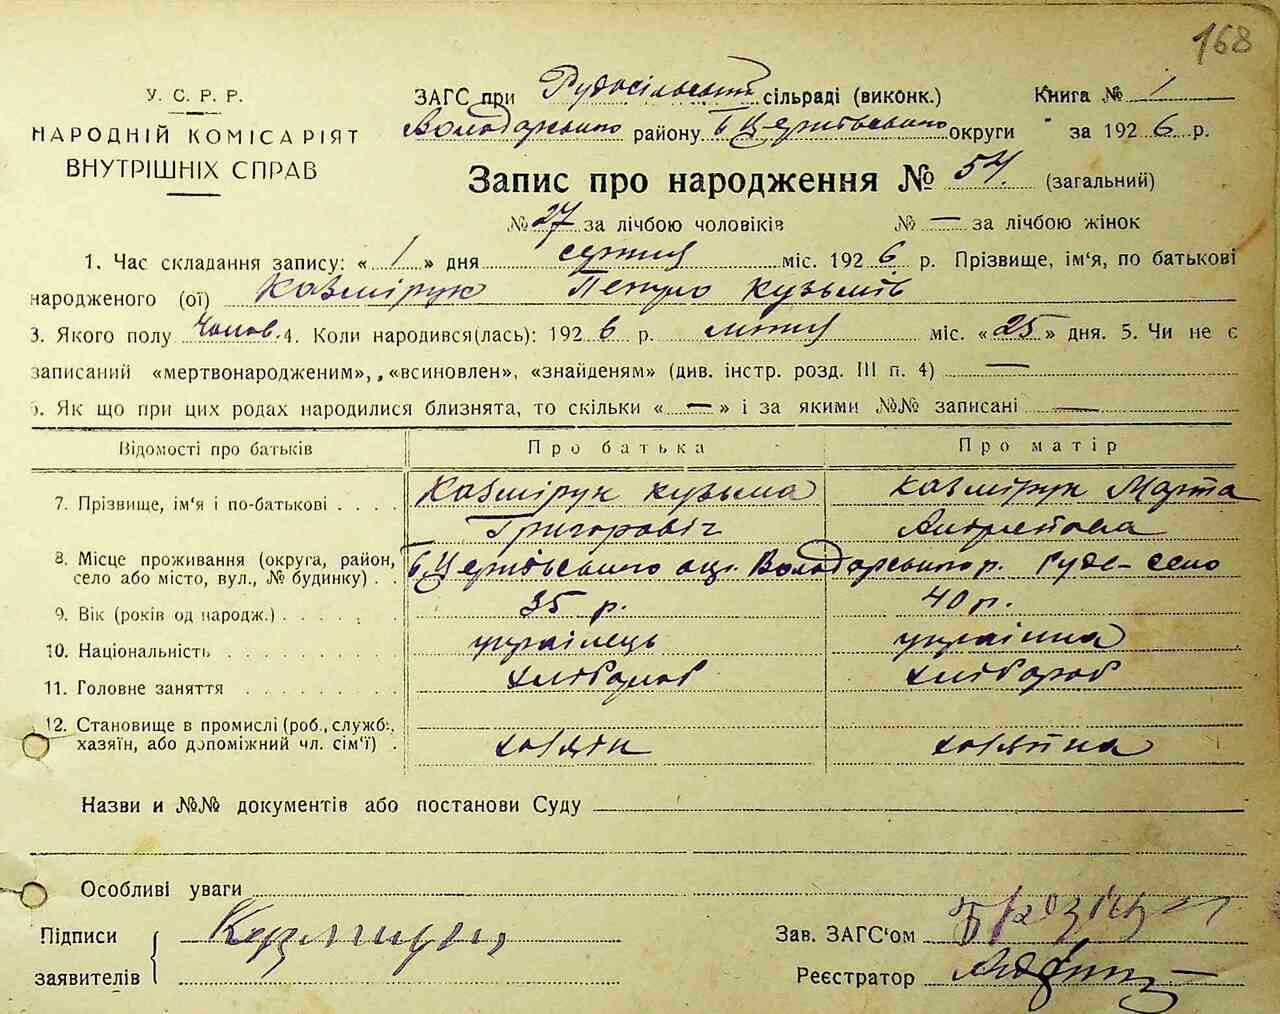 168
У. С. Р. Р.
НАРОДНІЙ КОМІСАРІЯТ
ВНУТРІШНІХ СПРАВ
ЗАГС при Рудосільській сільраді (виконк.) Книга № 1
Володарського району Б Церківського округи за 1926 р.
Запис про народження № 54. (загальний)
№ 27 за лічбою чоловіків № — за лічбою жінок
1. Час складання запису: « 1 » дня серпня міс. 1926 р. Прізвище, ім'я, по батькові
народженого (ої) Казмірук Петро Кузьмів
3. Якого полу Чолов. 4. Коли народився(лась): 1926 р. липня міс. «25» дня. 5. Чи не є
записаний «мертвонародженим», „«всиновлен», «знайденям» (див. інстр. розд. III п. 4) —
6. Як що при цих родах народилися близнята, то скільки « — » і за якими №№ записані —
Відомості про батьків Про батька Про матір
7. Прізвище, ім'я і по-батькові . . . . Казмірук Кузьма Казмірук Марта
Григоровіч Андреівна
8. Місце проживання (округа, район, село або місто, вул., № будинку) . Б Церківського окр. Володарського р. Руде-село
9. Вік (років од народж.) . . . . . . 35 р. 40 р.
10. Національність . . . . . . . . українець українка
11. Головне заняття . . . . . . . . хлібороб хлібороб
12. Становище в промислі (роб., служб.,
хазяїн, або допоміжний чл. сім'ї) . хазяін хазяйка
Назви и №№ документів або постанови Суду
Особливі уваги
Підписи
заявителів
Зав. ЗАГС'ом
Реєстратор